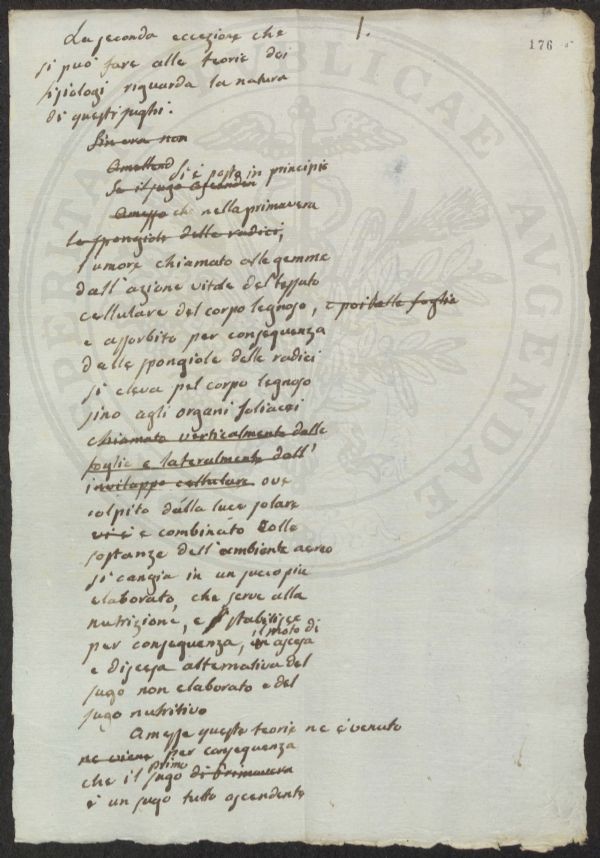 1.
176
La seconda eccezione che
si può fare alle teorie dei
fisiologi riguarda la natura
di questi sughi.
Sin ora non
Amettend Si è posto in principio
Se il sugo ascenden
Amesso che nella primavera
le spongiole delle radici,
l'umore chiamato alle gemme
dall'azione vitale del tessuto
cellulare del corpo legnoso, e poi dalle foglie
e assorbito per conseguenza
dalle spongiole delle radici
si eleva pel corpo legnoso
sino agli organi foliacei
chiamato verticalmente dalle
foglie e lateralmente dall'
inviluppo cellulare ove
colpito dalla luce solare
vi è e combinato colle
sostanze dell'ambiente aereo
si cangia in un succo più
elaborato, che serve alla
nutrizione, e stabilisce
per conseguenza, il moto di
ascesa
e discesa alternativa del
sugo non elaborato e del
sugo nutritivo
Amesse queste teorie ne è venuto
ne viene per conseguenza
che il primo sugo di Primavera
è un sugo tutto ascendente
SPERITA PUBLICAE AVGENDAE